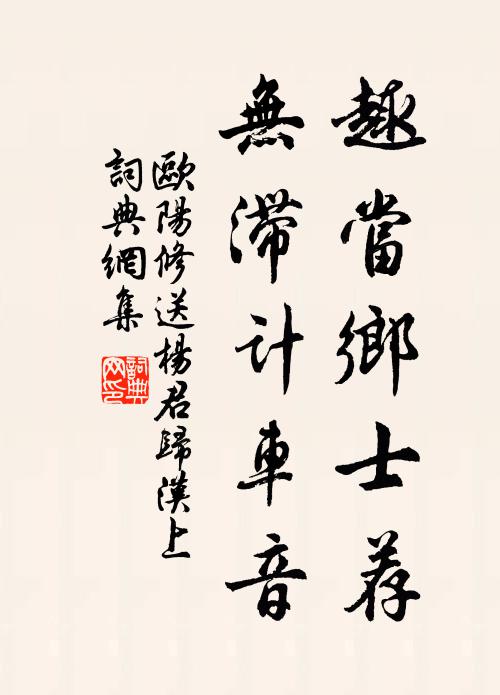 趣當鄉士荐
無滯計車音
歐陽修送楊君歸漢上
詞典網集
詞典
网印